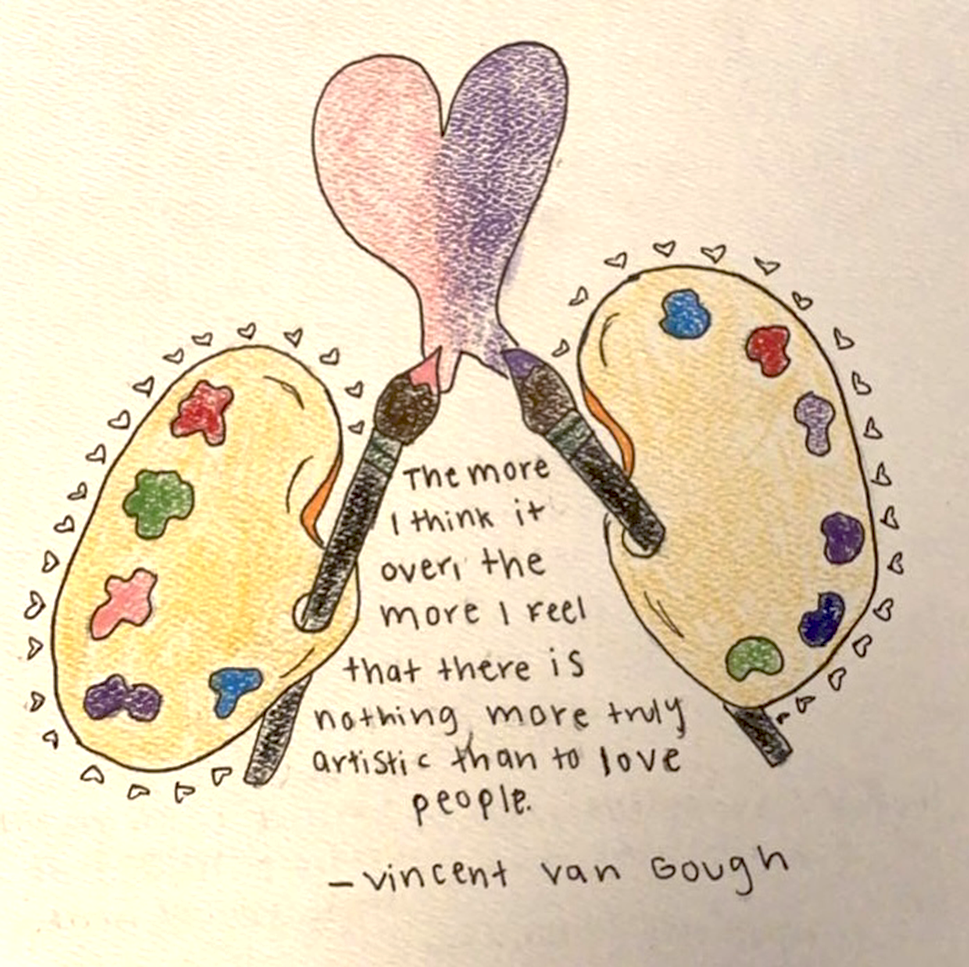 The more
I think it
over, the
more I feel
that there is
nothing more truly
artistic than to love
people.
-Vincent van Gough